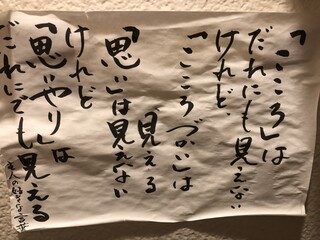 「こころ」は
だれにも見えない
けれど、
「こころづかい」は
見える
「思い」は見えない
けれど
「思いやり」は
だれにでも見える
主人の好きな言葉